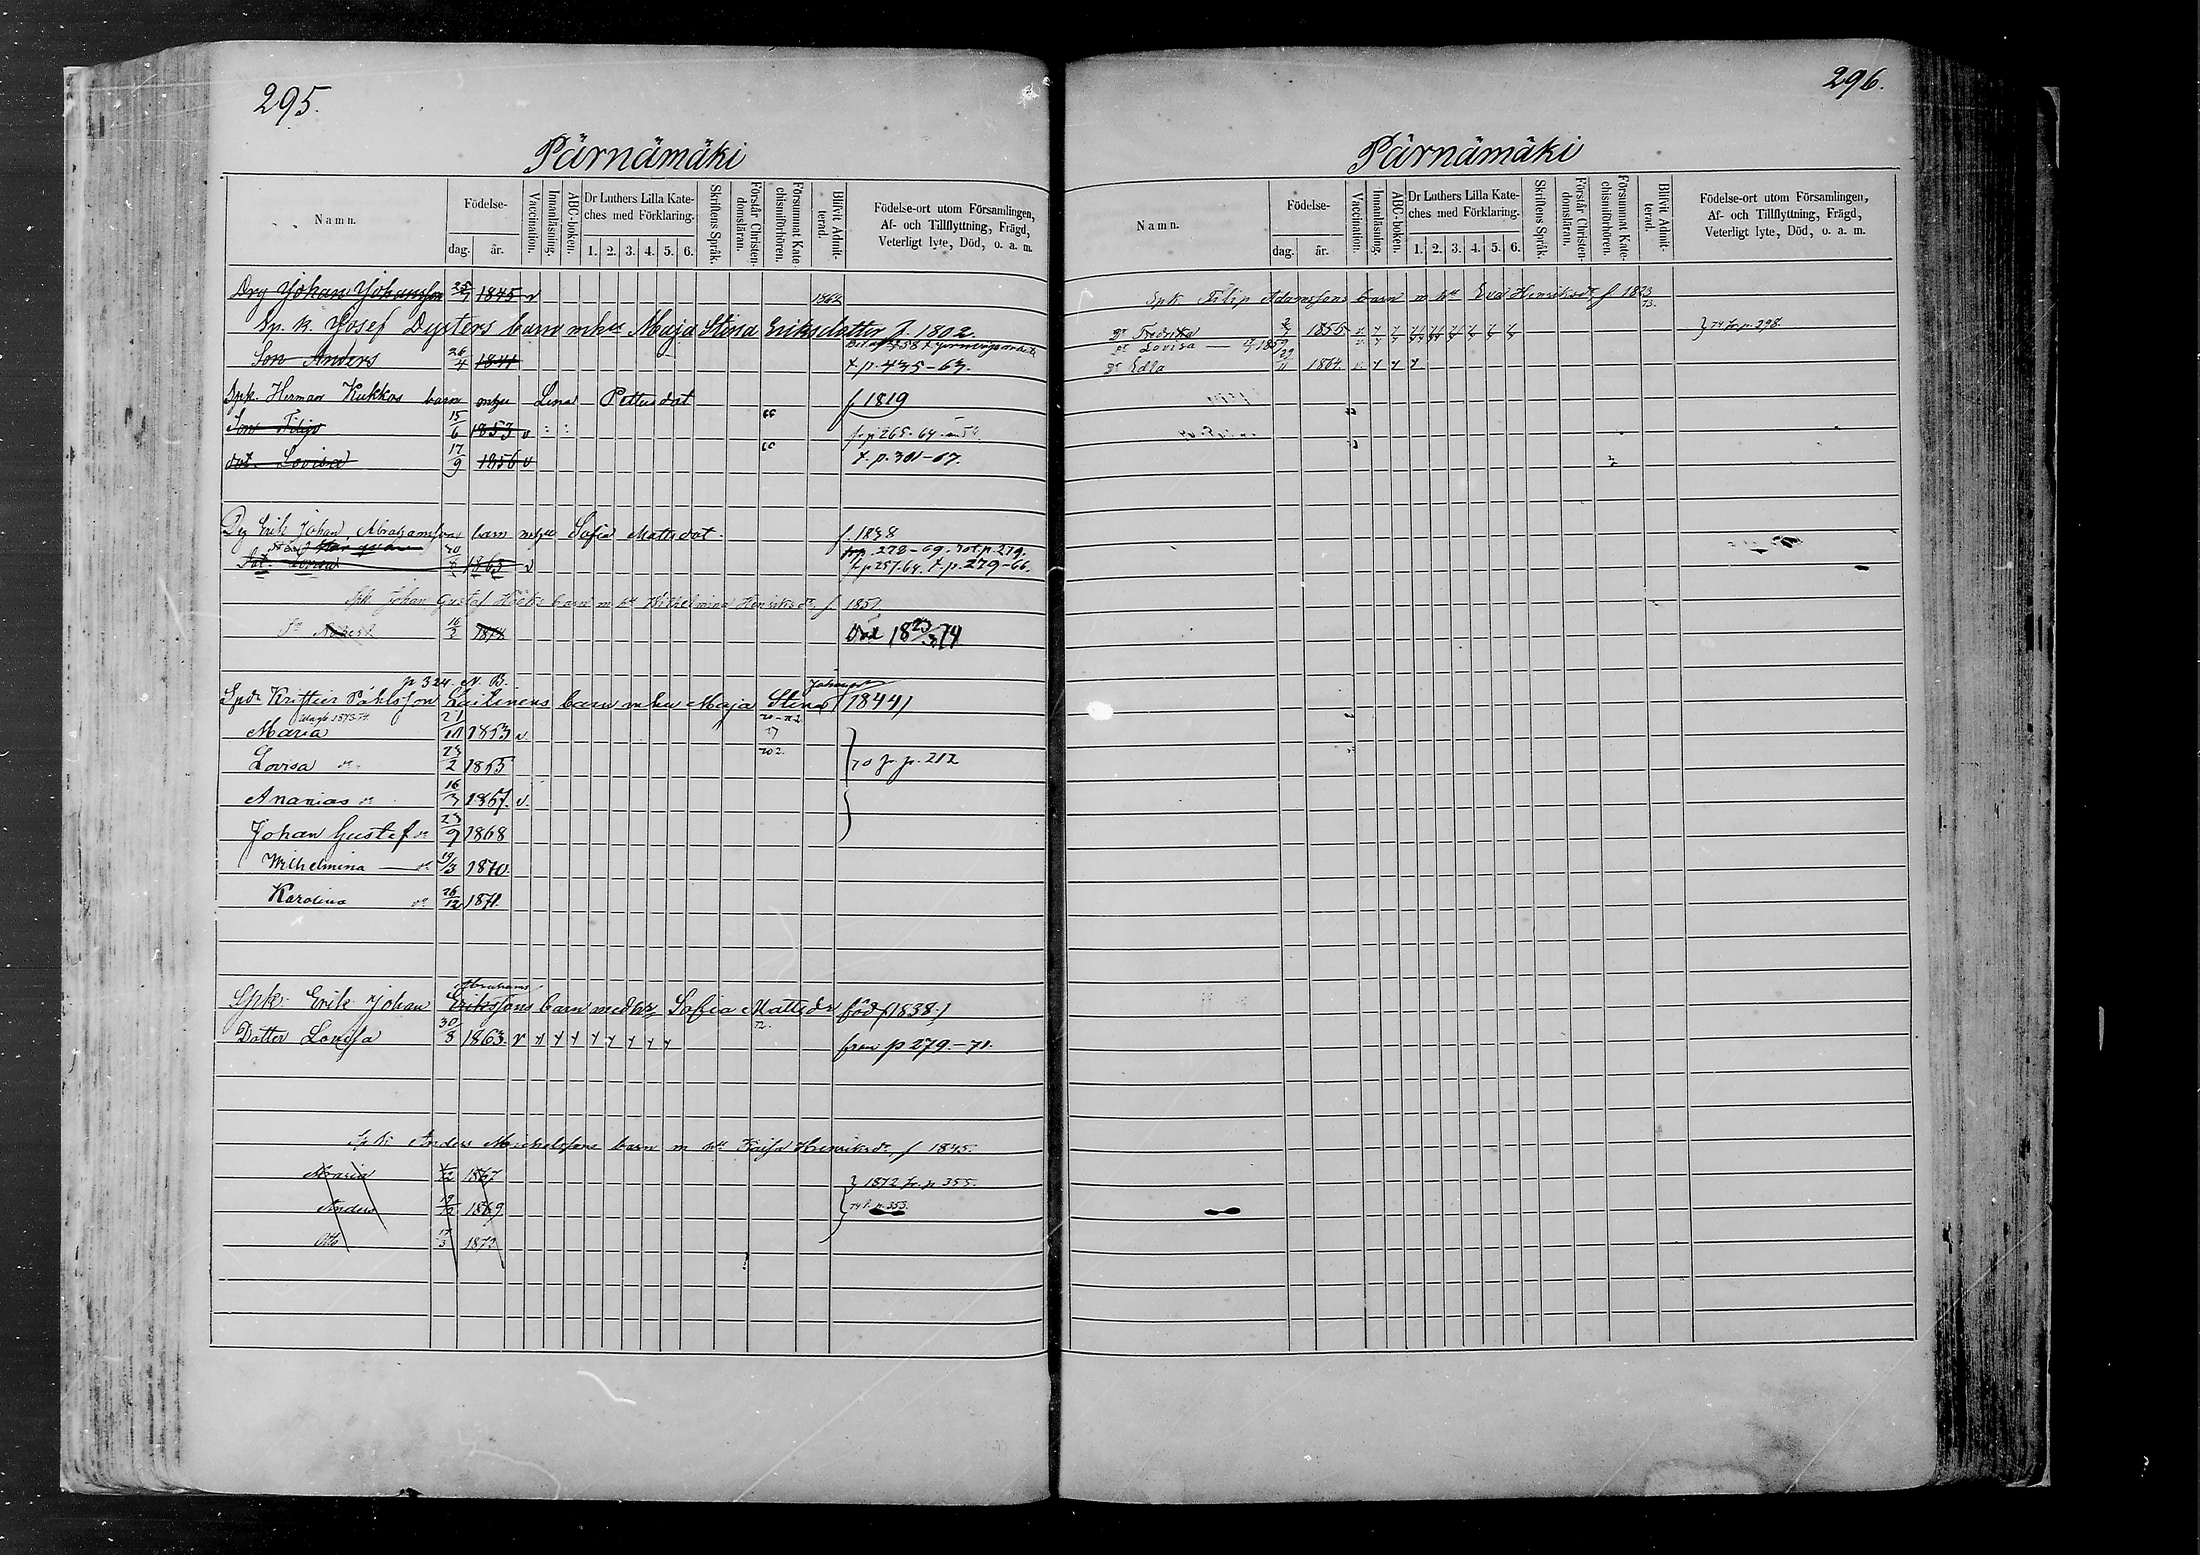 295.
Pärnämäki
Namn.
Födelse-
dag. år.
Vaccination.
Innanläsning.
ABC-boken.
Dr Luthers Lilla Kate-
ches med Förklaring.
1. 2. 3. 4. 5. 6.
Skriftens Språk.
Förstår Christen-
domsläran.
Försummat Kate-
chismiförhören.
Blifvit Admit-
terad.
Födelse-ort utom Församlingen,
Af- och Tillflyttning, Frägd,
Veterligt lyte, Död, o. a. m.
Drg Johan Johansson 25/7 1845 v 1863
Sp. k. Josef Dysters barn mhu Maja Stina Eriksdotter f. 1802
Son Anders 26/4 1841 t. p. 435-63.
Spk. Herman Kukkos barn mhu Lina Pettersdot f 1819
Son Filip 15/6 1853 v fr. p 265-64
dot. Lovisa 17/9 1856 v t. p. 301-67.
Drg Erik Johan Abrahamssons barn mhu Sofia Mattsdot. f. 1838
frp. 278-69. rot. p. 279.
Dot. Lovisa 30/8 1863 v t p 257.64. t. p. 279-66.
Spk Johan Gustaf barn m hu Wilhelmina Henriksdr f 1851
Sn Robert 16/2 1874 Död 18 23/3 74.
p 324. N. B.
Johansdr
Spdr Krister Påhlsson Laitinens barn mhu Maja Stina f 1844
Maria 21/11 1853 v.
Lovisa do 23/2 1855 70 fr p. 212
Ananias do 16/3 1867. v.
Johan Gustef do 23/9 1868
Wilhelmina — do 19/3 1870.
Karolina do 26/12 1871.
Abrahams
Spk. Erik Johan Erikssons barn med hu Sofia Mattsdr född 1838
72.
Dotter Lovisa 30/8 1863. v från p 279.-71.
Spk Anders Michelssons barn m hu Kajsa Henriksdr, f 1845.
Maria 1867 } 1872 fr. p 355.
Anders 1869 74 t. p. 353.
Otto 17/3 1873
296.
Pärnämäki
Namn.
Födelse-
dag. år.
Vaccination.
Innanläsning.
ABC-boken.
Dr Luthers Lilla Kate-
ches med Förklaring.
1. 2. 3. 4. 5. 6.
Skriftens Språk.
Förstår Christen-
domsläran.
Försummat Kate-
chismiförhören.
Blifvit Admit-
terad.
Födelse-ort utom Församlingen,
Af- och Tillflyttning, Frägd,
Veterligt lyte, Död, o. a. m.
Spk Filip Adamssons barn m hu Eva Henriksdr f 1823
73.
Dr Fredrika 1855 } 74 fr. p. 298.
Dr Lovisa — 1859
Dr Edla 29/11 1864.